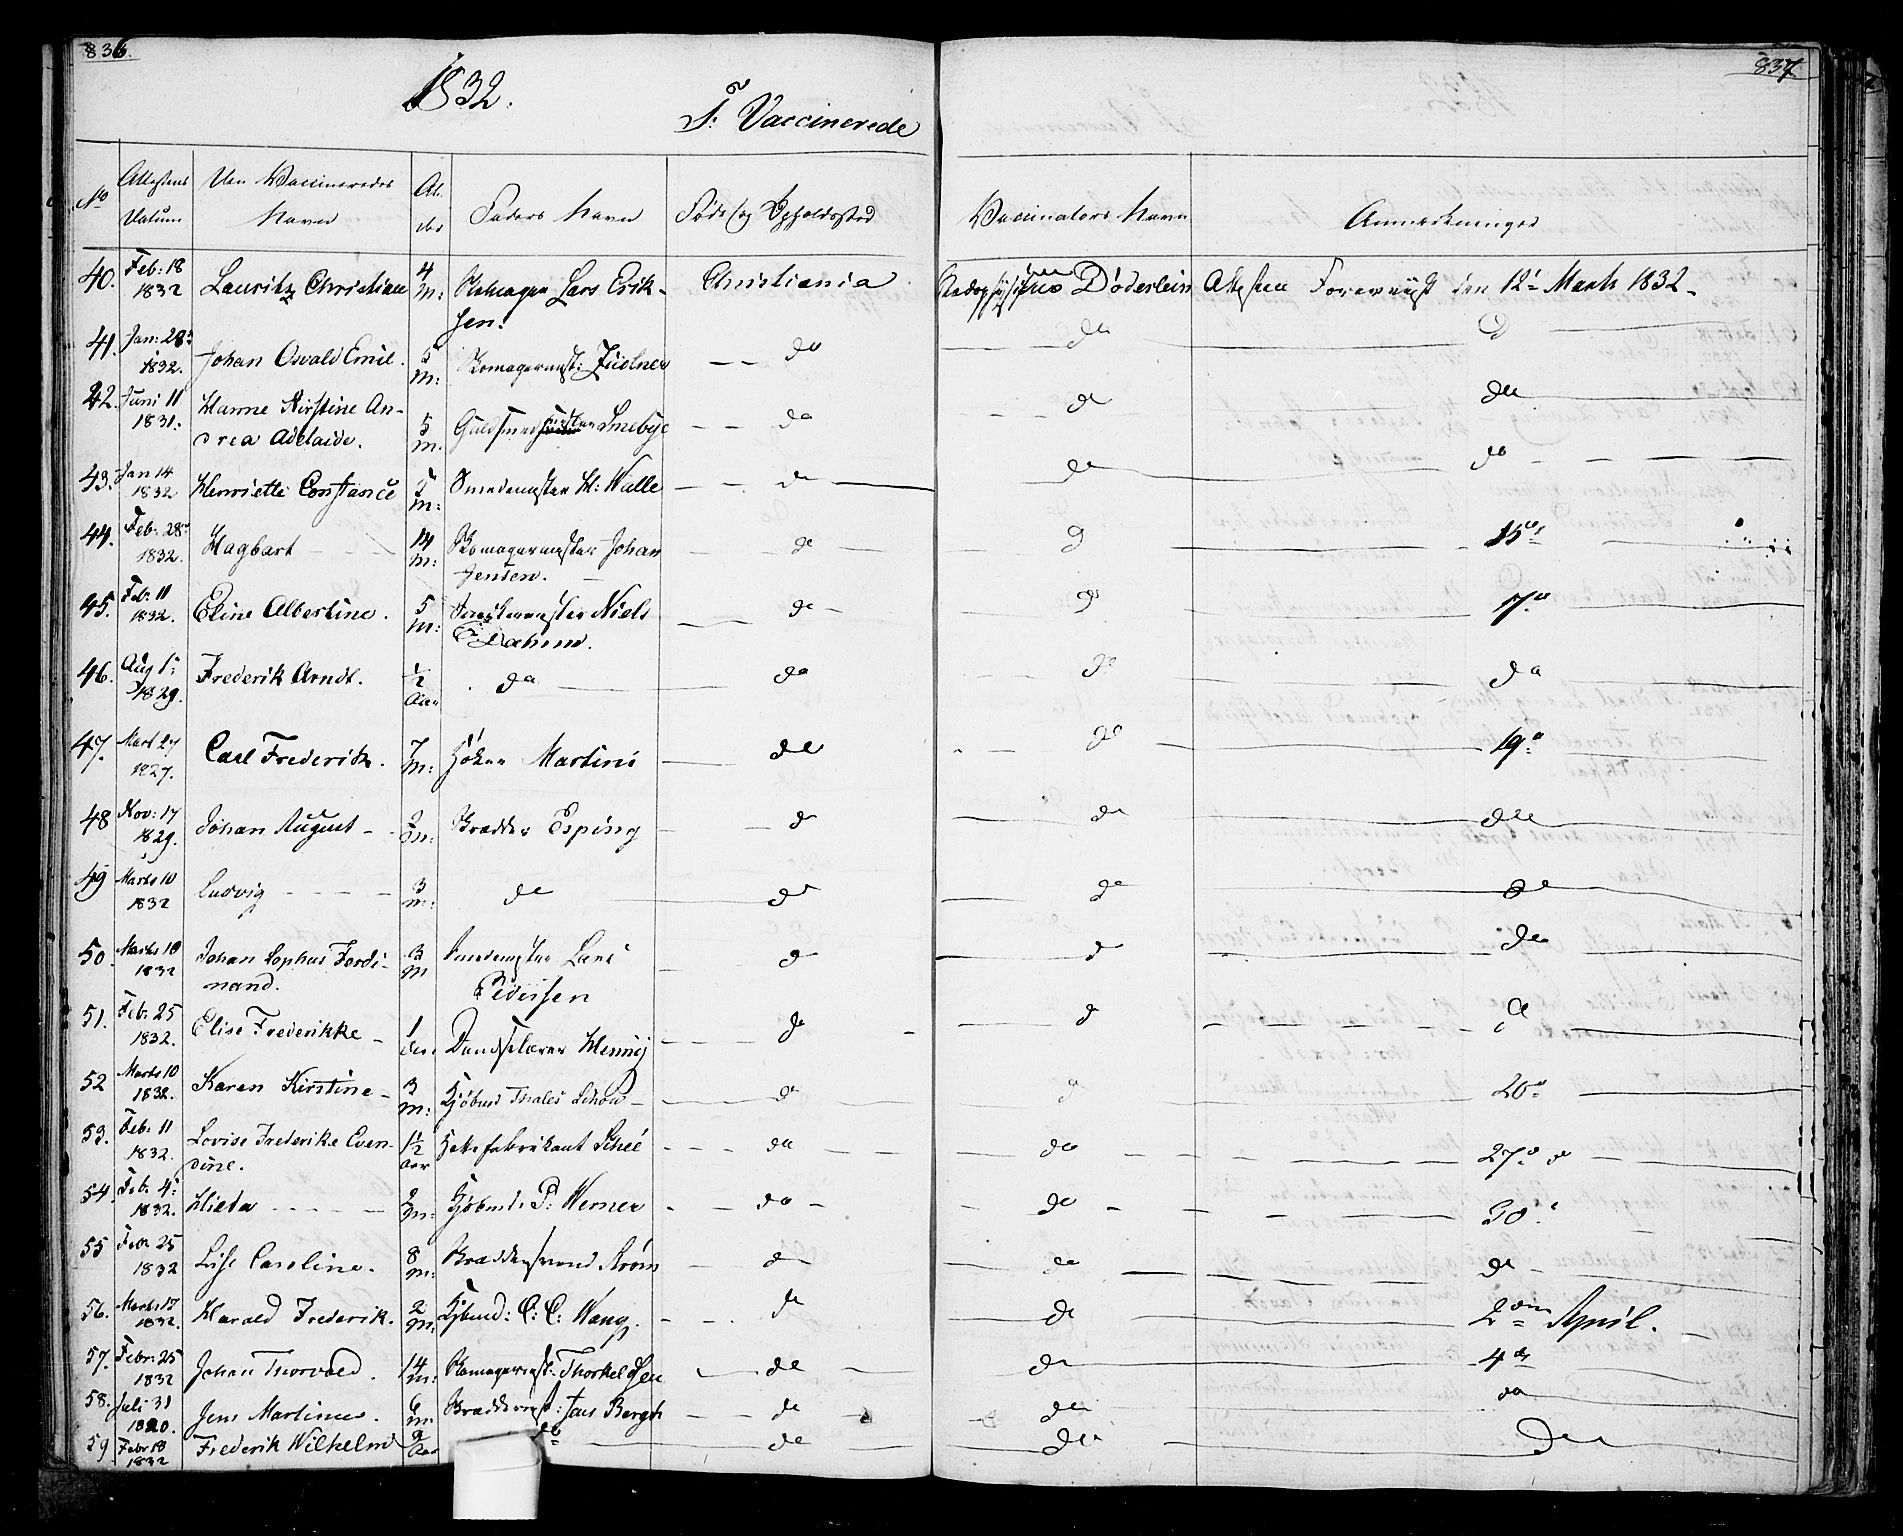 836.
837
1832.
F: Vaccinerede
No
Attestens Datum
Den Vaccineredes Navn
Al- der
Faders Navn
Føde og Opholdssted
Vaccinators Navn
Anmærkninger
40. Feb: 18 1832 Lauritz Christian 4 M: Lars Erik- sen. Christiania Stadsphysicus Døderlein Attesten Foreviist den 12te Marts 1832.
41. Jan: 28 1832. Johan Osvald Emil. 5 M: do do do
42. Juni 11 1831. Hanne Kirstine An- drea Adelaide. 5 M. Guldsmed Smebye do do do
43. Jan 14 1832 Henriette Constance M: Smedemester H: Walle do do do
44. Feb: 28 1832. Hagbart 14 M: Johan Jensen. do do 15de
45. Feb. 11 1832. Eline Albertine. 5 M: Niels do do 17de
46. Aug 1 1829. Frederik Arndt. 1/2 Aar do do do do
47. Mart 27 1827. Carl Frederik. 7 M: Høker Martini do do 19de
48 Nov: 17 1829. Johan August M: Esping do do do
49 Marts 10 1832 Ludvig 3 M: do do do do
50. Marts 10 1832 Johan Sophus Ferdi- nand. 3 M Smedemester Lars Pedersen do do do
51. Feb. 25 1832. Elise Frederikke 1 Dandselærer Henning do do do
52 Marts 10 1832. Karen Kirstine 3 M: Kjøbmd Thales Schow do do 20de
53. Feb. 11 1832. Lovise Frederikke Even- dine. 1 1/2 Aar do do 27de do
54. Feb. 4 1832. 2 M: Kjøbmd. P: Werner do do 30te
55 Febr 25 1832 Lise Caroline. 8 M: Strøm do do do
56. Marts 17 1832. Harald Frederik. 2 M: Kjøbmd: C: C: Wang. do do 2den April.
57. Febr: 25 1832 Johan Thorvald. 14 M: Thorkeldsen do do 4de
58. Juli 31 1820. Jens Martinus. 6 M: Jens Bergh do do do
59 Febr 18 1832 Frederik Wilhelm 9 Aar do do do do